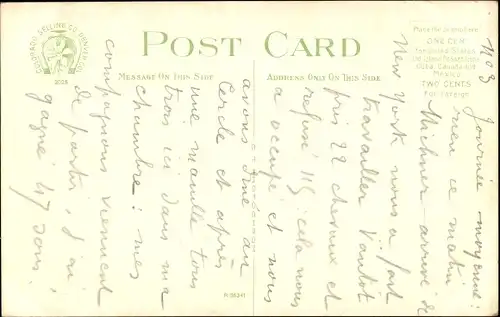 COLORADO SELLING CO. DENVER, COLO.
2028
POST CARD
MESSAGE ON THIS SIDE
ADDRESS ONLY ON THIS SIDE
ONE CENT
For United States
Cuba, Canada and
Mexico
TWO CENTS
For Foreign
1103
Journée moyenne !
rien ce matin
Michner arrivé de
New York nous a fait
travailler tantôt
pris 22 chevaux et
refusé 115 cela nous
a occupé et nous
avons dîné au
Cercle et après
une manille tous
trois ici dans ma
chambre ! mes
compagnons viennent
de partir, j'ai
gagné 47 sous !